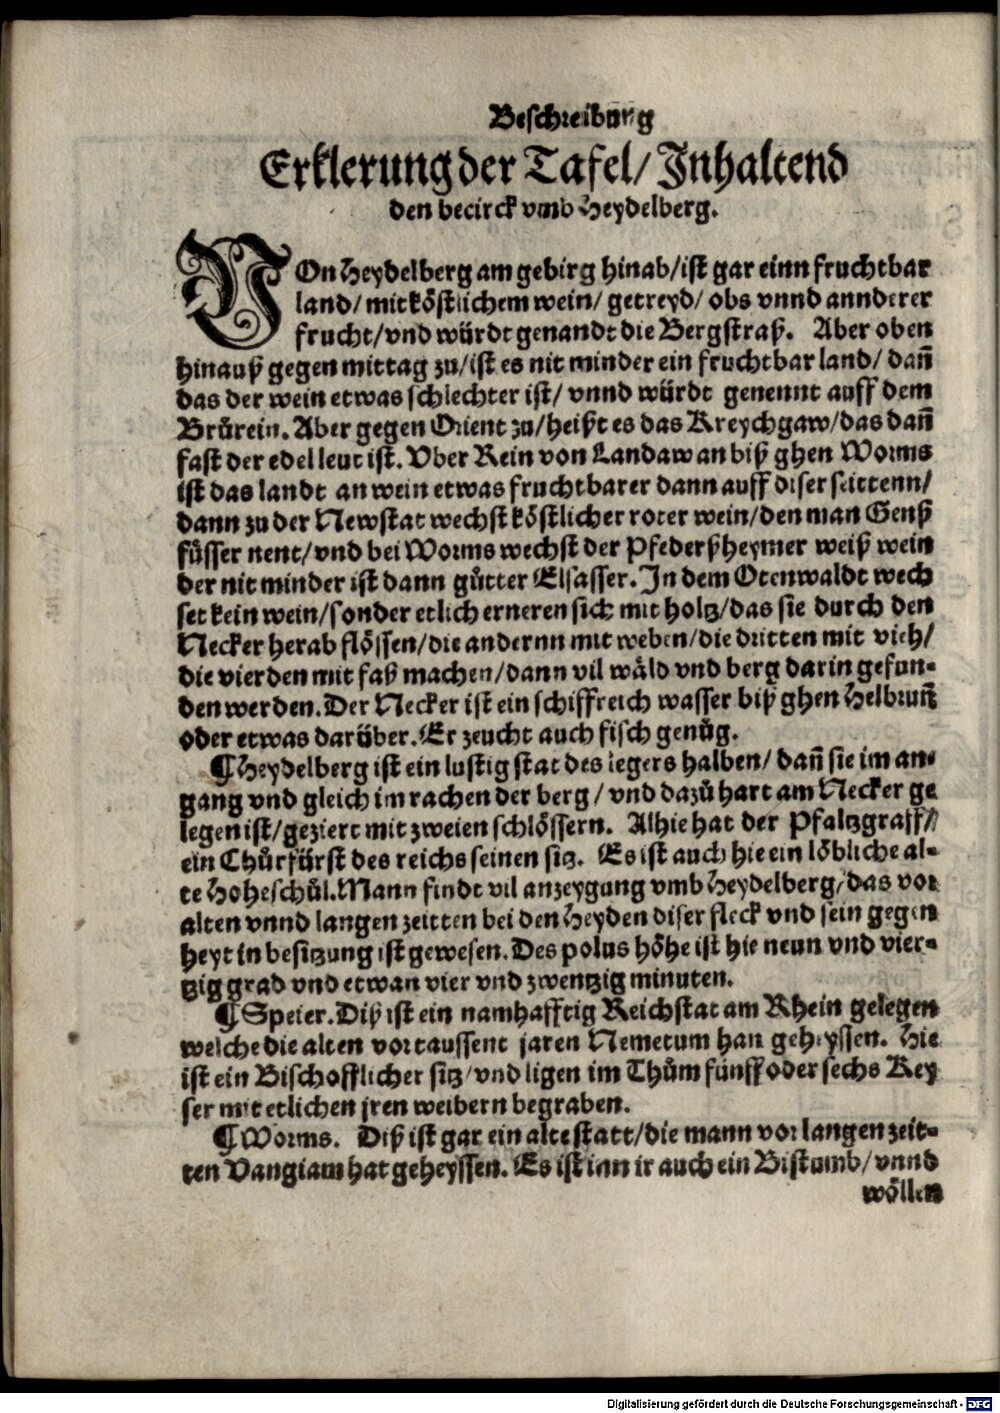 Beschreibung
Erklerung der Tafel/ Jnhaltend
den becirck vmb Heydelberg.
VOn Heydelberg am gebirg hinab/ist gar einn fruchtbar
land/ mit köstlichem wein/ getreyd/ obs vnnd annderer
frucht/vnd würdt genandt die Bergstraß. Aber oben
hinauß gegen mittag zu/ist es nit minder ein fruchtbar land/ dañ
das der wein etwas schlechter ist/ vnnd würdt genennt auff dem
Brůrein. Aber gegen Orient zu/heißt es das Kreychgaw/das dañ
fast der edel leut ist. Vber Rein von Landaw an biß ghen Worms
ist das landt an wein etwas fruchtbarer dann auff diser seittenn/
dann zu der Newstat wechst köstlicher roter wein/den man Genß
füsser nent/vnd bei Worms wechst der Pfederßheymer weiß wein
der nit minder ist dann gůtter Elsasser. Jn dem Otenwaldt wech
set kein wein/sonder etlich erneren sich mit holtz/das sie durch den
Necker herab flössen/die andernn mit weben/die dritten mit vieh/
die vierden mit faß machen/dann vil wäld vnd berg darin gefun-
den werden. Der Necker ist ein schiffreich wasser biß ghen Helbrunñ
oder etwas darüber. Er zeucht auch fisch genůg.
¶ Heydelberg ist ein lustig stat des legers halben/ dañ sie im an-
gang vnd gleich im rachen der berg/ vnd dazů hart am Necker ge
legen ist/geziert mit zweien schlössern. Alhie hat der Pfaltzgraff/
ein Chůrfürst des reichs seinen sitz. Es ist auch hie ein löbliche al-
te Hoheschůl. Mann findt vil anzeygung vmb Heydelberg/das vor
alten vnnd langen zeitten bei den Heyden diser fleck vnd sein gegen
heyt in besitzung ist gewesen. Des polus höhe ist hie neun vnd vier-
tzig grad vnd etwan vier vnd zwentzig minuten.
¶ Speier. Diß ist ein namhafftig Reichstat am Rhein gelegen
welche die alten vor taussent jaren Nemetum han geheyssen. Hie
ist ein Bischofflicher sitz/vnd ligen im Thům fünff oder sechs Key
ser mit etlichen jren weibern begraben.
¶ Worms. Diß ist gar ein alte statt/die mann vor langen zeit-
ten Vangiam hat geheyssen. Es ist inn ir auch ein Bistumb/ vnnd
wöllen
Digitalisierung gefördert durch die Deutsche Forschungsgemeinschaft - DFG